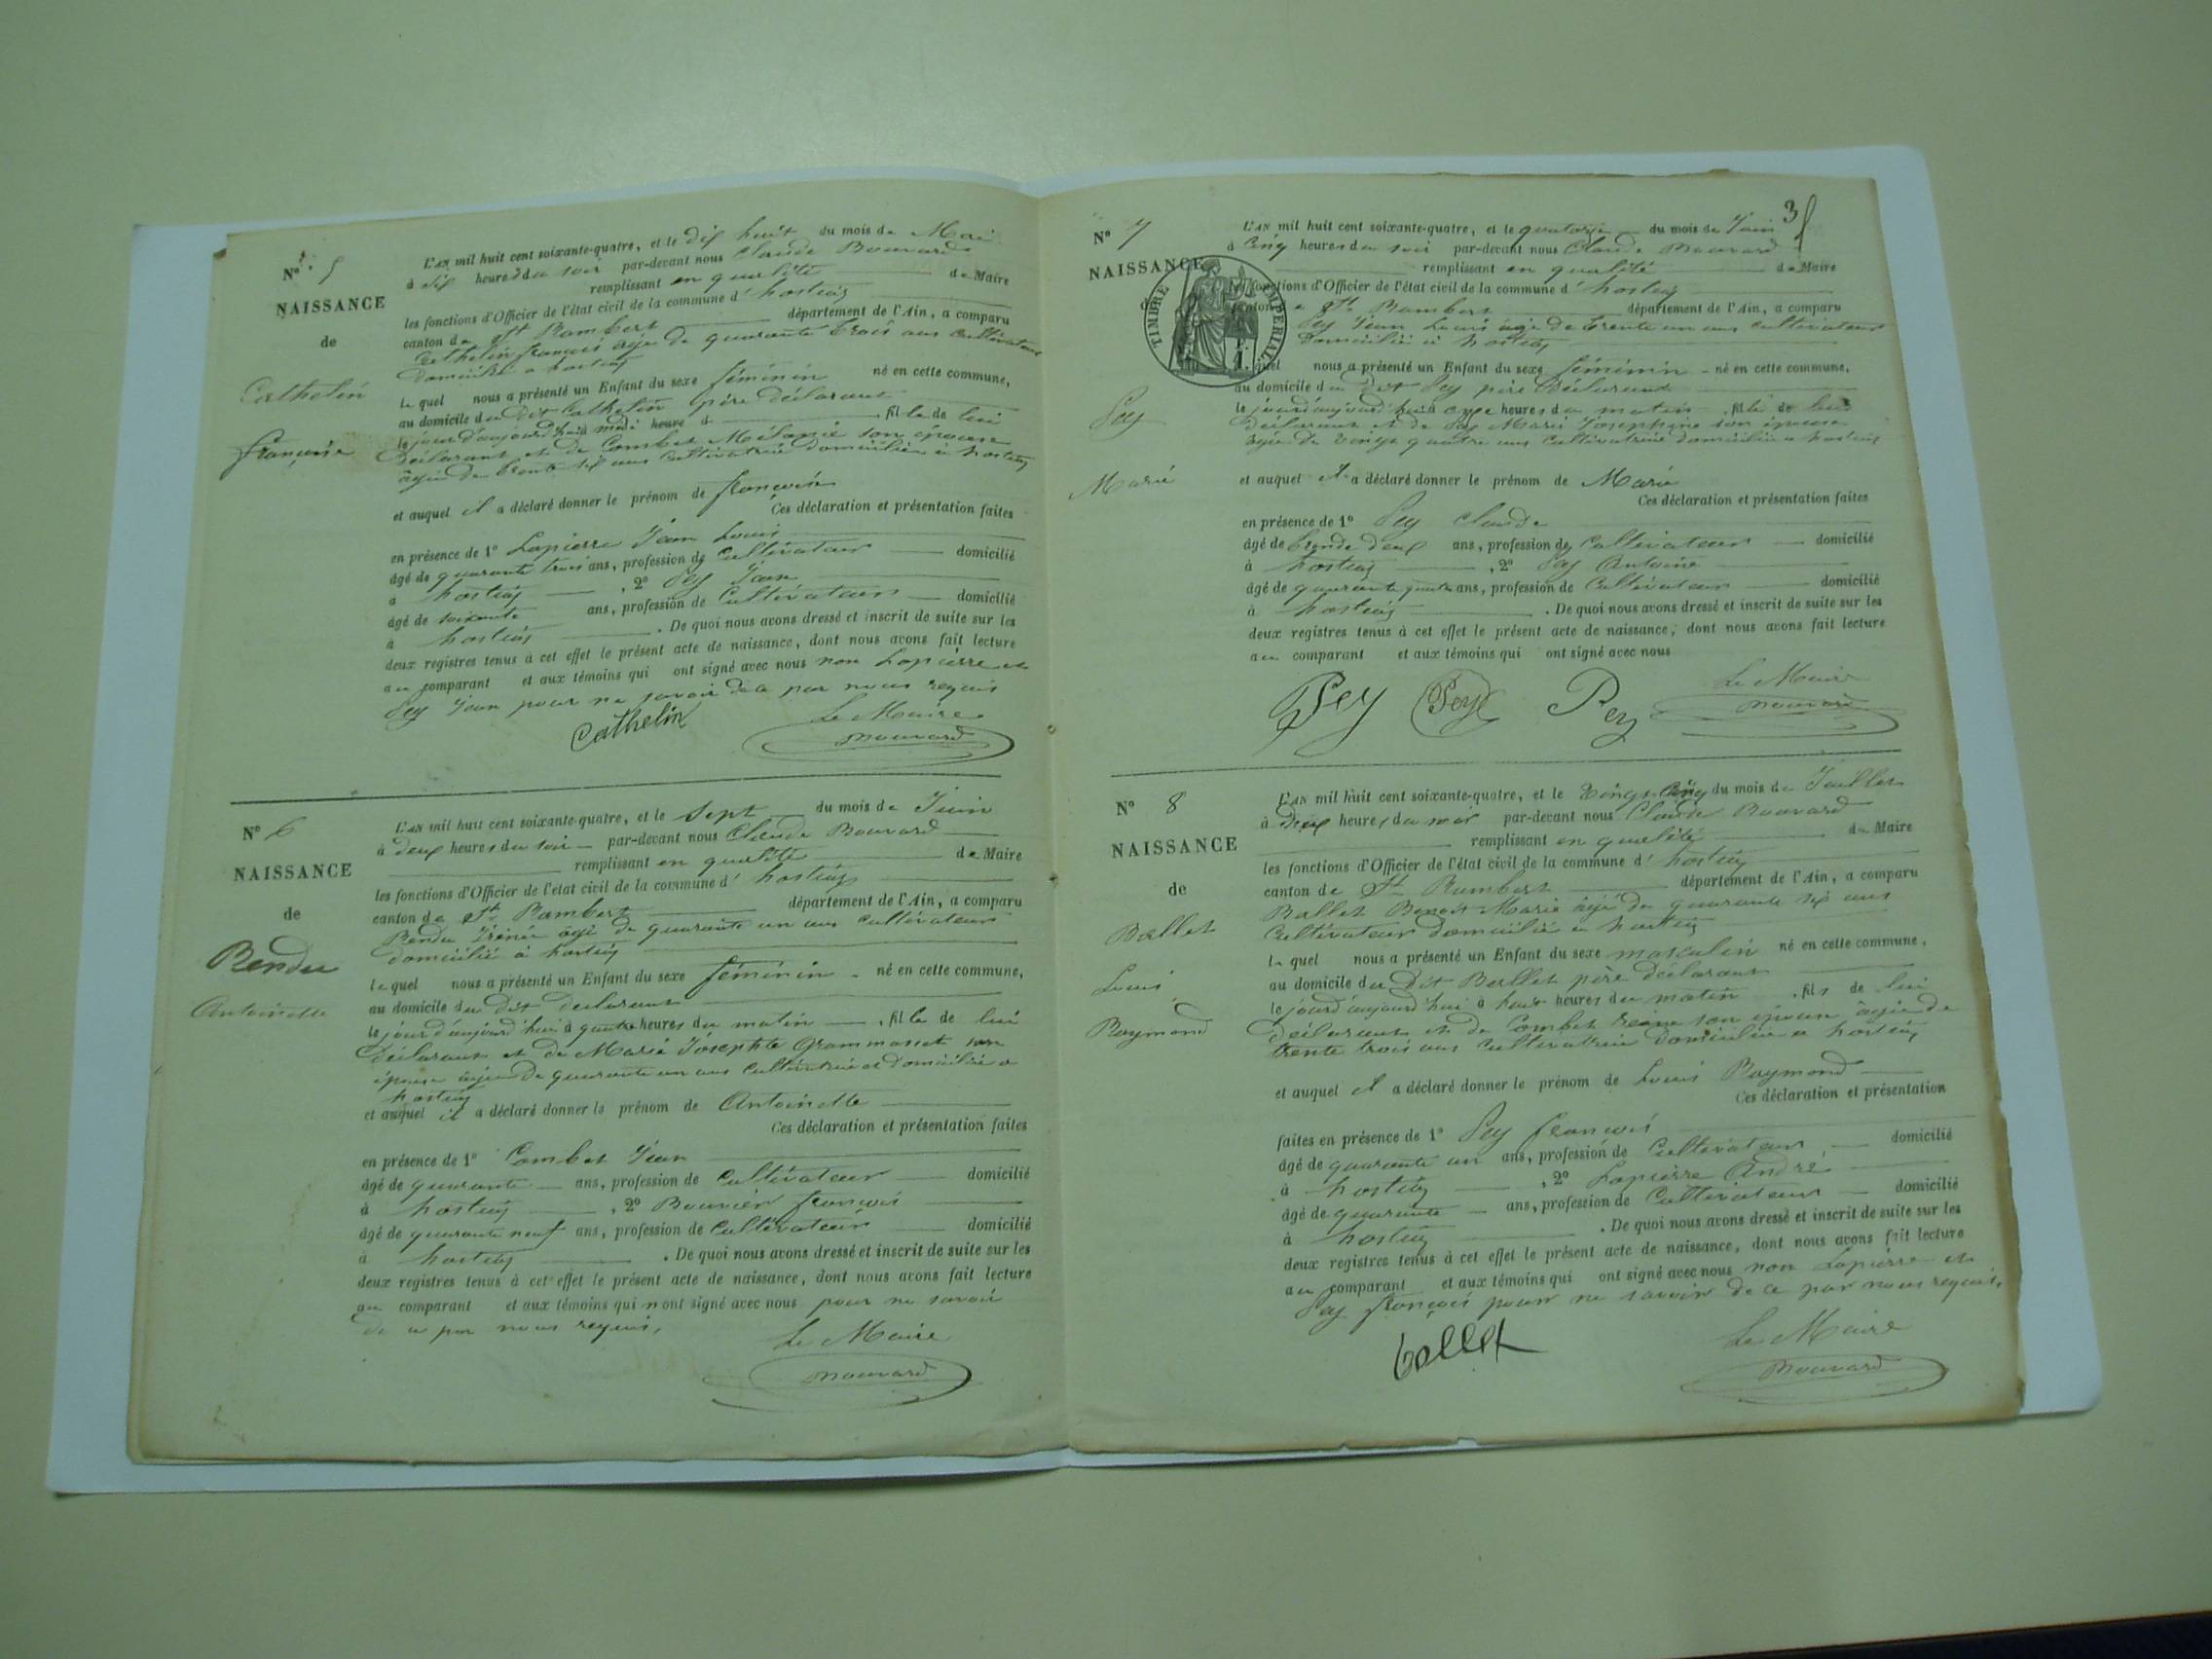 N° 5
NAISSANCE
de
Cathelin
françoise
L'AN mil huit cent soixante-quatre, et le dix huit du mois de Mai
à six heures du soir par-devant nous Claude Bouvard
remplissant en qualité de Maire
les fonctions d'Officier de l'état civil de la commune d' hostiaz
canton de St Rambert département de l'Ain, a comparu
Cathelin françois âgé de quarante trois ans Cultivateur
domicilié a hostiaz
lequel nous a présenté un Enfant du sexe féminin né en cette commune,
au domicile du dit Cathelin père déclarant
le jour d'aujourd'hui à midi heure à , fille de lui
déclarant et de Combet Mélanie son épouse
âgée de trente six ans Cultivatrice domiciliée à hostiaz
et auquel il a déclaré donner le prénom de françoise
Ces déclaration et présentation faites
en présence de 1° Lapierre Jean Louis
âgé de quarante trois ans, profession de Cultivateur domicilié
à hostiaz , 2° Pey Jean
âgé de soixante ans, profession de Cultivateur domicilié
à hostiaz . De quoi nous avons dressé et inscrit de suite sur les
deux registres tenus à cet effet le présent acte de naissance, dont nous avons fait lecture
au comparant et aux témoins qui ont signé avec nous non Lapierre et
Pey Jean pour ne savoir de ce par nous requis
Cathelin
Le Maire
Bouvard
N° 6
NAISSANCE
de
Rendu
Antoinette
L'AN mil huit cent soixante-quatre, et le Sept du mois de Juin
à deux heures du soir par-devant nous Claude Bouvard
remplissant en qualité de Maire
les fonctions d'Officier de l'état civil de la commune d' hostiaz
canton de St Rambert département de l'Ain, a comparu
Rendu Irénée âgé de quarante un ans Cultivateur
domicilié à hostiaz
lequel nous a présenté un Enfant du sexe féminin né en cette commune,
au domicile du dit déclarant
le jour d'aujourd'hui à quatre heures du matin , fille de lui
déclarant et de Marie Josephte Grammasset son
épouse âgée de quarante un ans Cultivatrice et domiciliée a
hostiaz
et auquel il a déclaré donner le prénom de Antoinette
Ces déclaration et présentation faites
en présence de 1° Combet Jean
âgé de quarante ans, profession de Cultivateur domicilié
à hostiaz , 2° françois
âgé de quarante neuf ans, profession de Cultivateur domicilié
à hostiaz . De quoi nous avons dressé et inscrit de suite sur les
deux registres tenus à cet effet le présent acte de naissance, dont nous avons fait lecture
au comparant et aux témoins qui n ont signé avec nous pour ne savoir
de ce par nous requis,
Le Maire
Bouvard
3
N° 7
NAISSANCE
TIMBRE IMPERIAL
Pey
Marie
L'AN mil huit cent soixante-quatre, et le quatorze du mois de Juin
à Cinq heures du soir par-devant nous Claude Bouvard
remplissant en qualité de Maire
les fonctions d'Officier de l'état civil de la commune d' hostiaz
canton de St Rambert département de l'Ain, a comparu
Pey Jean Louis âgé de trente un ans Cultivateur
domicilié à hostiaz
lequel nous a présenté un Enfant du sexe féminin né en cette commune,
au domicile du dit Pey père déclarant
le jour d'aujourd'hui à onze heures du matin , fille de lui
déclarant et de Pey Marie Josephine son épouse
âgée de vingt quatre ans Cultivatrice domiciliée a hostiaz
et auquel il a déclaré donner le prénom de Marie
Ces déclaration et présentation faites
en présence de 1° Pey Claude
âgé de trente deux ans, profession de Cultivateur domicilié
à hostiaz , 2° Pey Antoine
âgé de quarante quatre ans, profession de Cultivateur domicilié
à hostiaz . De quoi nous avons dressé et inscrit de suite sur les
deux registres tenus à cet effet le présent acte de naissance, dont nous avons fait lecture
au comparant et aux témoins qui ont signé avec nous
Pey Pey Pey
Le Maire
Bouvard
N° 8
NAISSANCE
de
Ballet
Louis
Raymond
L'AN mil huit cent soixante-quatre, et le vingt Cinq du mois de Juillet
à deux heures du soir par-devant nous Claude Bouvard
remplissant en qualité de Maire
les fonctions d'Officier de l'état civil de la commune d' hostiaz
canton de St Rambert département de l'Ain, a comparu
Ballet Benoit Marie âgé de quarante six ans
Cultivateur domicilié a hostiaz
lequel nous a présenté un Enfant du sexe masculin né en cette commune,
au domicile du dit Ballet père déclarant
le jour d'aujourd'hui à huit heures du matin , fils de lui
déclarant et de Combet reine son épouse âgée de
trente trois ans Cultivatrice domiciliée a hostiaz
et auquel il a déclaré donner le prénom de Louis Raymond
Ces déclaration et présentation
faites en présence de 1° Pey françois
âgé de quarante un ans, profession de Cultivateur domicilié
à hostiaz , 2° Lapierre André
âgé de quarante ans, profession de Cultivateur domicilié
à hostiaz . De quoi nous avons dressé et inscrit de suite sur les
deux registres tenus à cet effet le présent acte de naissance, dont nous avons fait lecture
au comparant et aux témoins qui ont signé avec nous non Lapierre et
Pey françois pour ne savoir de ce par nous requis,
ballet
Le Maire
Bouvard